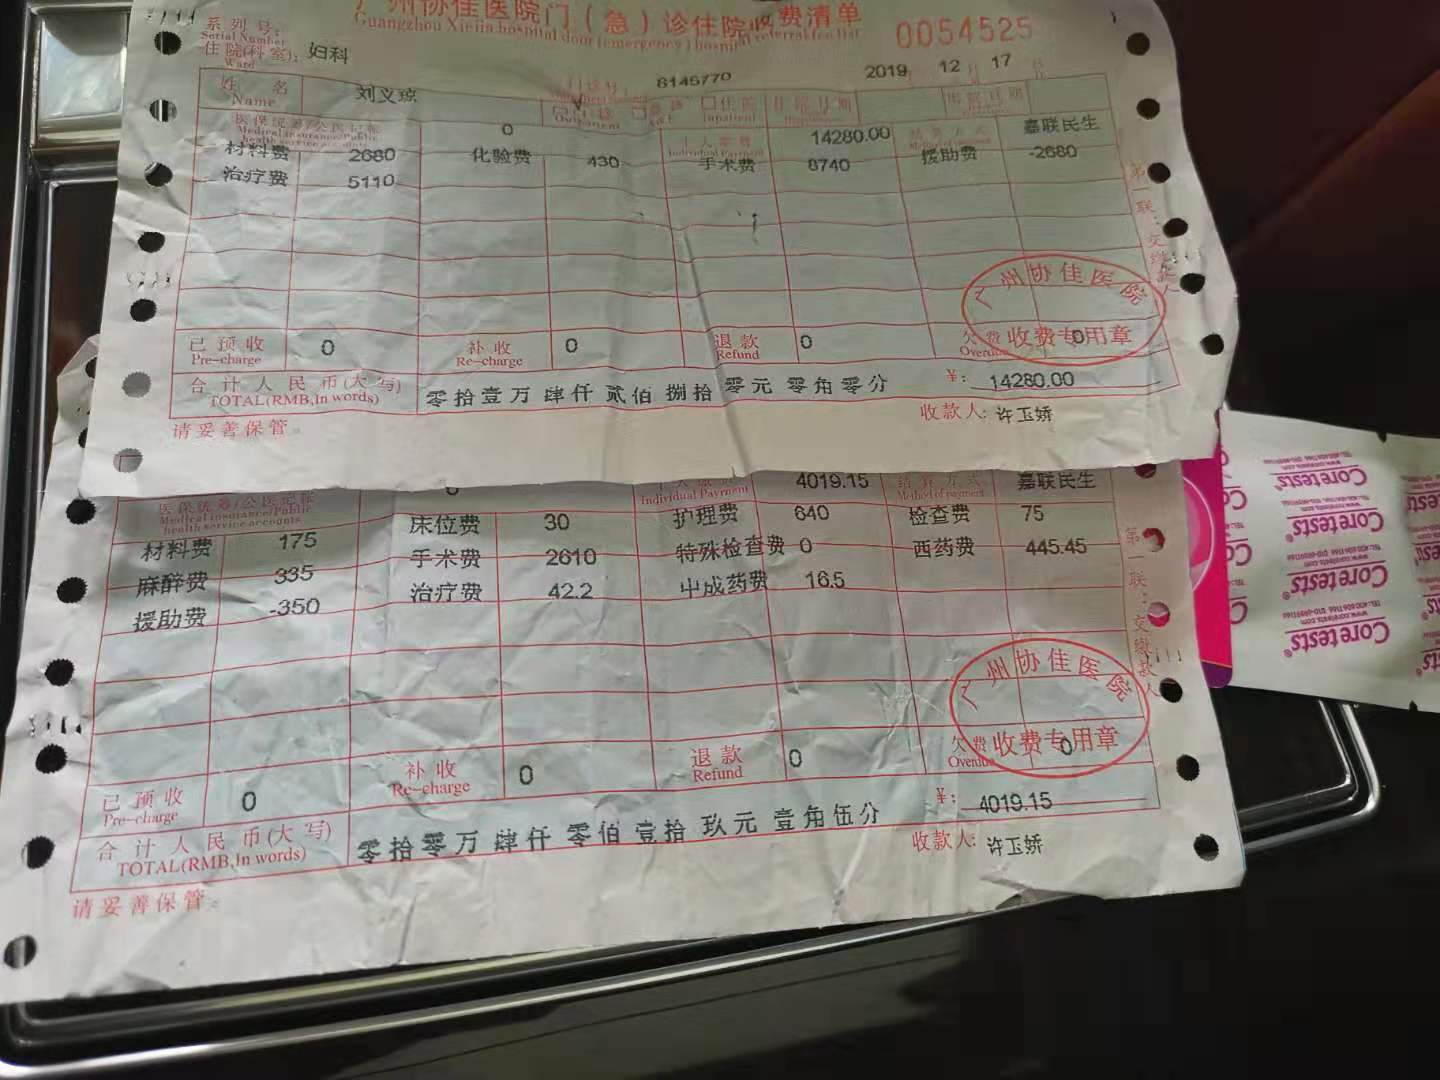 广州协佳医院门(急)诊住院收费清单
Guangzhou Xiejia hospital door (emergency) hospital referral fee list
系列号:
Serial Number
0054525
住院(科室): 妇科
Ward
8146770
2019 12 17
姓 名
Name
刘义琼
门诊
Outpatient
急诊
A&E
住院
Inpatient
住院日期
出院日期
医保统筹/公医记帐
Medical insurance/Public
health service accounts
0
个人缴费
Individual Payment
14280.00
结算方式
Method of payment
嘉联民生
材料费 2680 化验费 430 手术费 8740 援助费 -2680
治疗费 5110
第一联:交缴款人
已预收
Pre-charge
0
补收
Re-charge
0
退款
Refund
0
欠费
Overdue
0
广州协佳医院
收费专用章
合计人民币(大写)
TOTAL(RMB,In words)
零拾壹万 肆仟 贰佰 捌拾 零元 零角零分
¥: 14280.00
请妥善保管。
收款人: 许玉娇
医保统筹/公医记帐
Medical insurance/Public
health service accounts
0
个人缴费
Individual Payment
4019.15
结算方式
Method of payment
嘉联民生
材料费 175 床位费 30 护理费 640 检查费 75
麻醉费 335 手术费 2610 特殊检查费 0 西药费 445.45
援助费 -350 治疗费 42.2 中成药费 16.5
第一联:交缴款人
已预收
Pre-charge
0
补收
Re-charge
0
退款
Refund
0
欠费
Overdue
0
广州协佳医院
收费专用章
合计人民币(大写)
TOTAL(RMB,In words)
零拾零万 肆仟 零佰 壹拾 玖元 壹角伍分
¥: 4019.15
请妥善保管。
收款人: 许玉娇
Coretests®
www.coretests.com
Coretests®
www.coretests.com
Coretests®
www.coretests.com